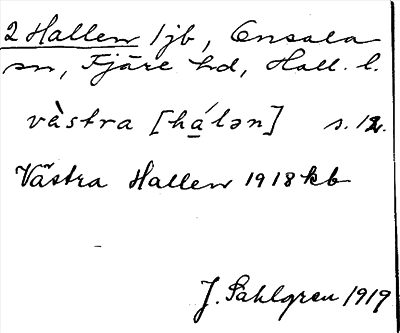 2 Hallen 1jb, Onsala
sn, Fjäre hd, Hall. l.
va᷆stra [há̱lən] s. 12.
Västra Hallen 1918 kb
J. Sahlgren 1919